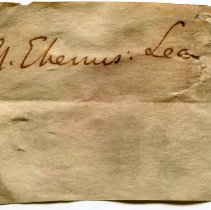 Ebenus: Lea